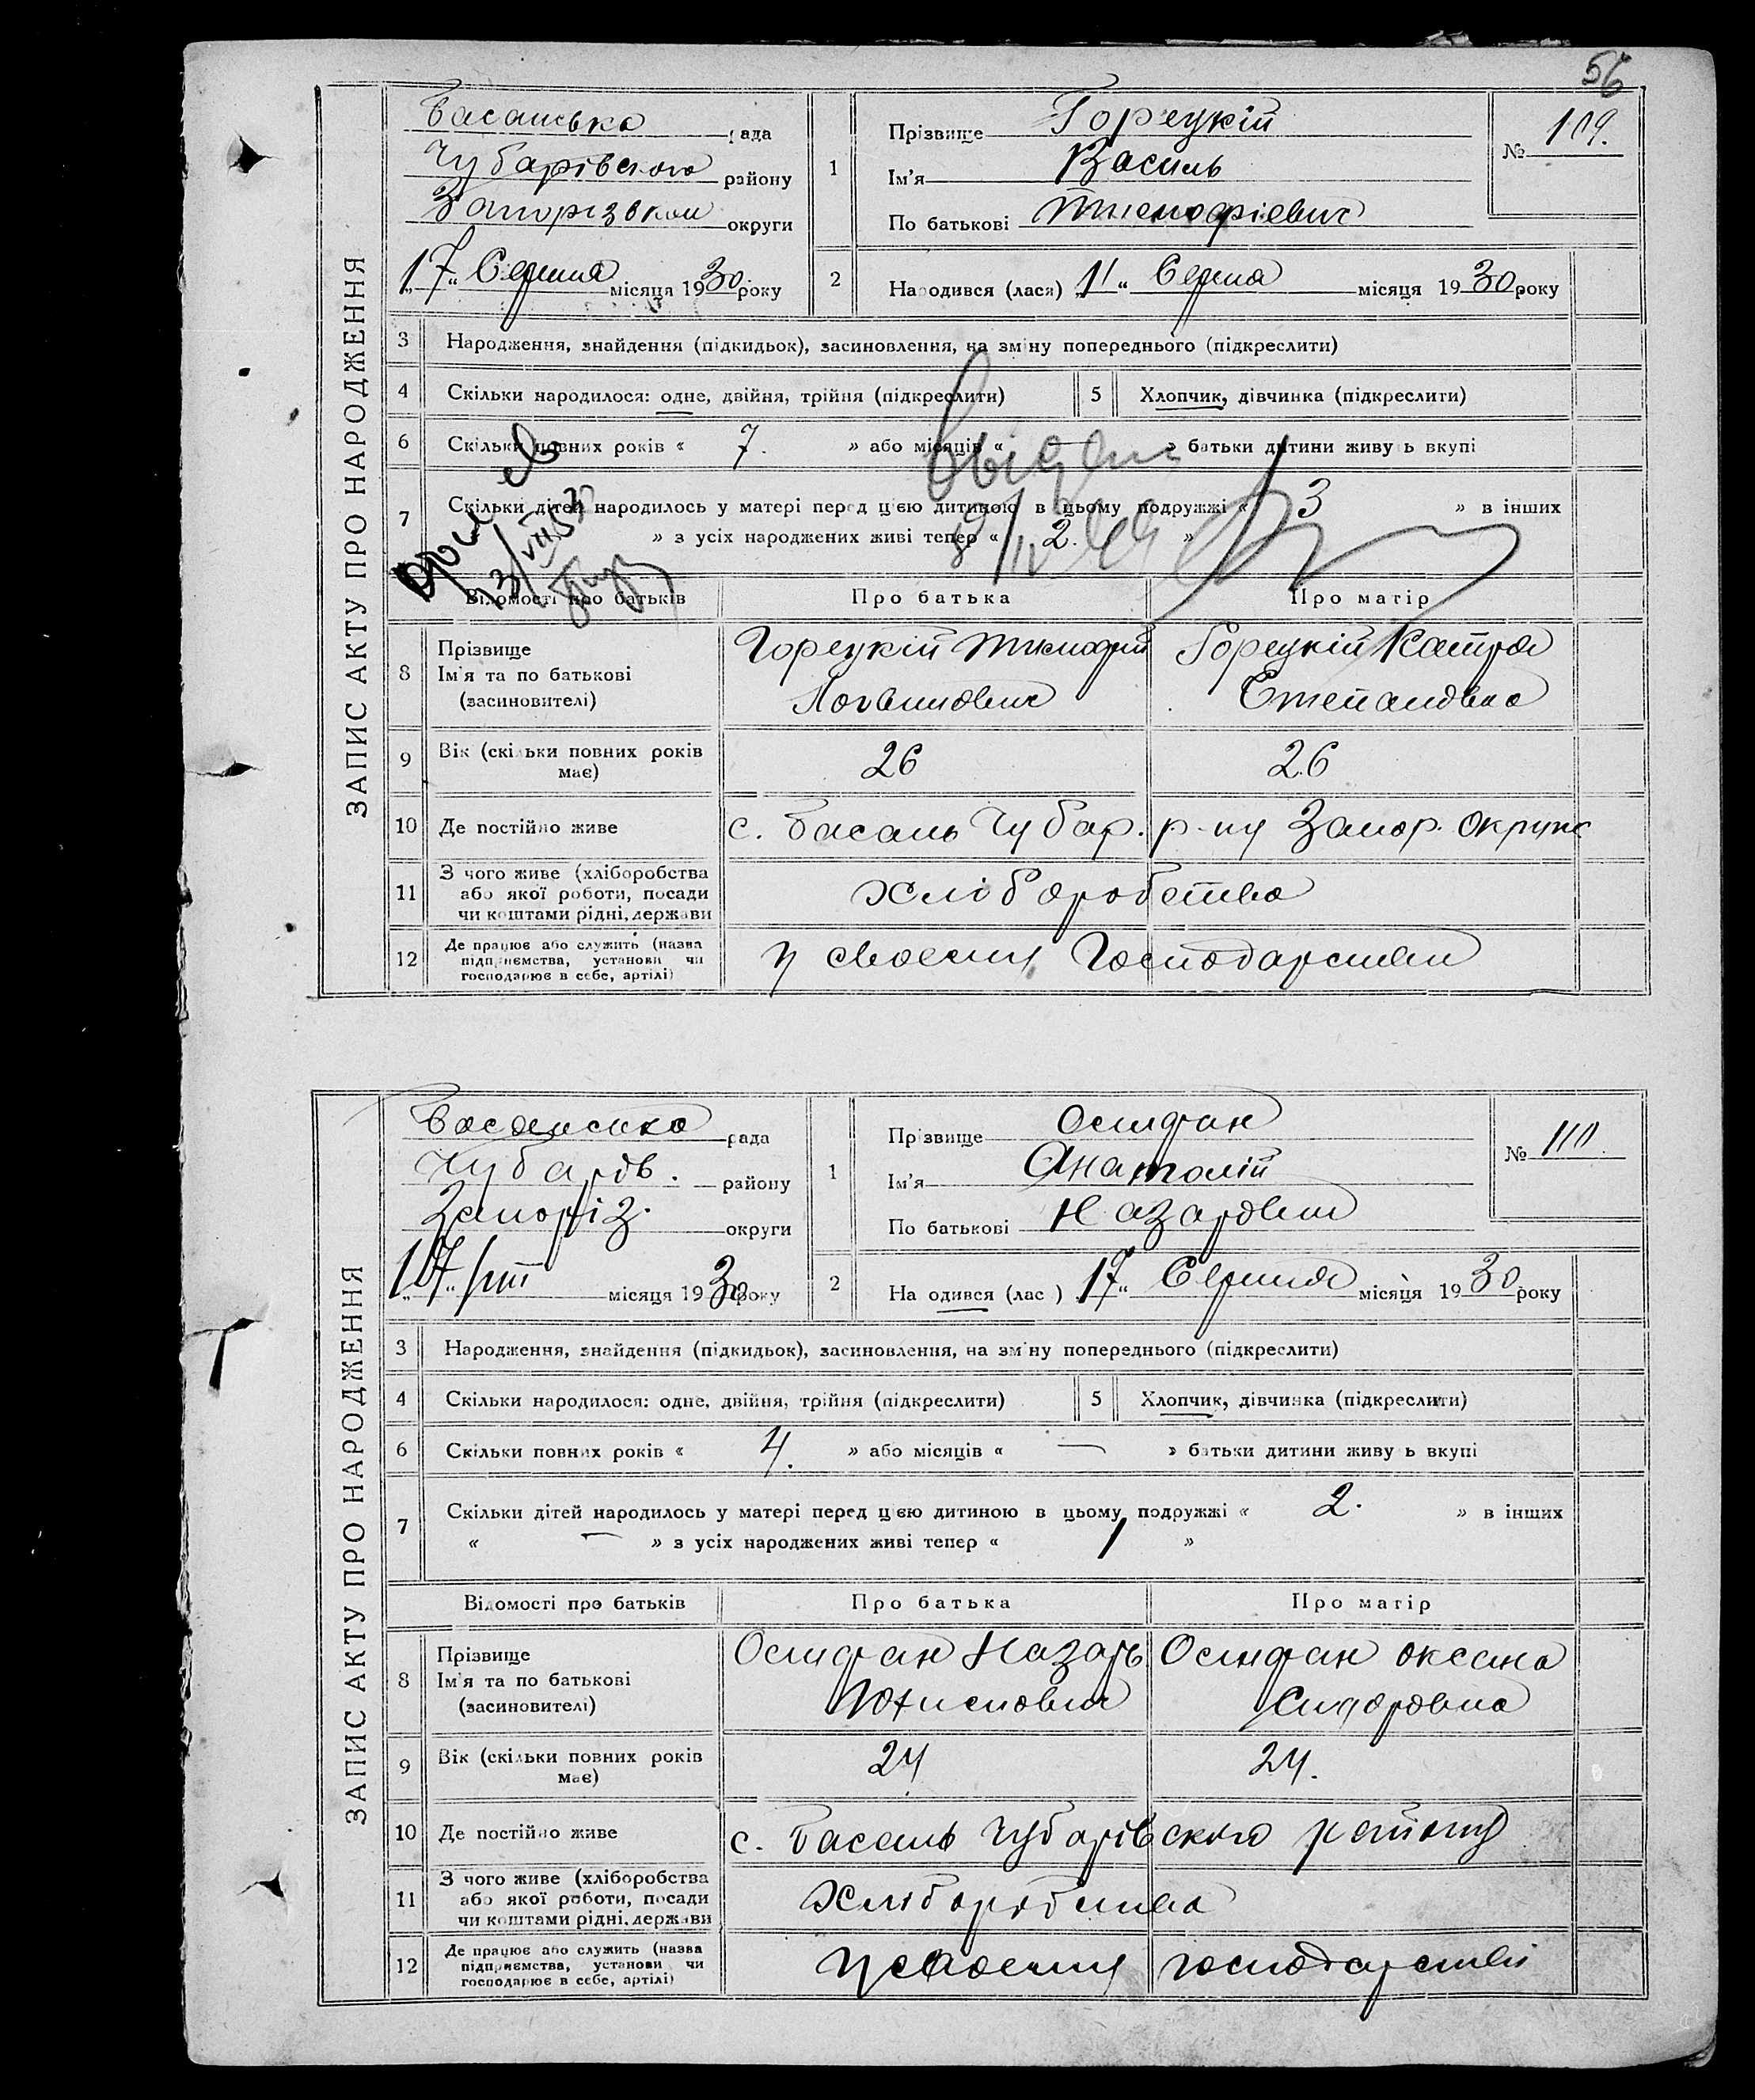 56
ЗАПИС АКТУ ПРО НАРОДЖЕННЯ
Басанська рада
Чубарівського району
Запорізькои округи
„17“ Серпня місяця 1930 року
1
Прізвище Горецкій
Ім'я Василь
По батькові Тимофіевич
№ 109.
2
Народився (лася) „11“ Серпня місяця 1930 року
3 Народження, знайдення (підкидьок), засиновлення, на зміну попереднього (підкреслити)
4 Скільки народилося: одне, двійня, трійня (підкреслити)
5 Хлопчик, дівчинка (підкреслити)
6 Скільки повних років « 7. » або місяців « — » батьки дитини живуть вкупі
7 Скільки дітей народилось у матері перед цією дитиною в цьому подружжі « 3 » в інших
» з усіх народжених живі тепер « 2. »
Відомості про батьків Про батька Про матір
8 Прізвище
Ім'я та по батькові
(засиновителі)
Горецкій Тимофий
Логвинович
Горецкій Катря
Степановна
9 Вік (скільки повних років має) 26 26
10 Де постійно живе с. Басань Чубар. р-ну Запор. Округи
11 З чого живе (хліборобства
або якої роботи, посади
чи коштами рідні, держави
хліборобства
12 Де працює або служить (назва
підприємства, установи чи
господарює в себе, артілі)
у своему Господарстви
ЗАПИС АКТУ ПРО НАРОДЖЕННЯ
Басанська рада
Чубарів. району
Запоріз. округи
„17“ /VIII місяця 1930 року
1
Прізвище Осипан
Ім'я Анатолій
По батькові Назарович
№ 110.
2
Народився (лас ) „17“ Серпня місяця 1930 року
3 Народження, знайдення (підкидьок), засиновлення, на зміну попереднього (підкреслити)
4 Скільки народилося: одне, двійня, трійня (підкреслити)
5 Хлопчик, дівчинка (підкреслити)
6 Скільки повних років « 4. » або місяців « — » батьки дитини живуть вкупі
7 Скільки дітей народилось у матері перед цією дитиною в цьому подружжі « 2. » в інших
« — » з усіх народжених живі тепер « 1 »
Відомості про батьків Про батька Про матір
8 Прізвище
Ім'я та по батькові
(засиновителі)
Осипан Назарь
Осипан Оксана
Сидоровна
9 Вік (скільки повних років має) 24 24.
10 Де постійно живе с. Басань Чубарівского району
11 З чого живе (хліборобства
або якої роботи, посади
чи коштами рідні, держави
Хліборобства
12 Де працює або служить (назва
підприємства, установи чи
господарює в себе, артілі)
у своему господарстві